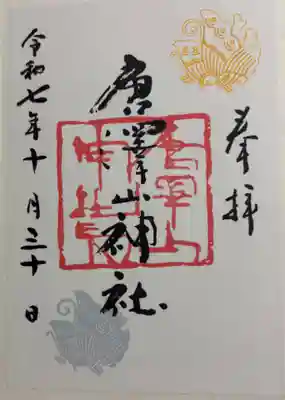 奉拝
唐澤山神社
唐澤山
神社
令和七年十月三十日